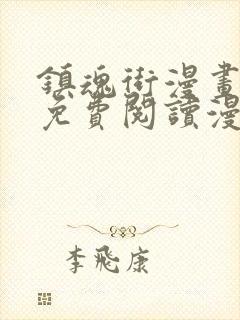 鎮魂街漫畫
免費閱讀漫
李飛康